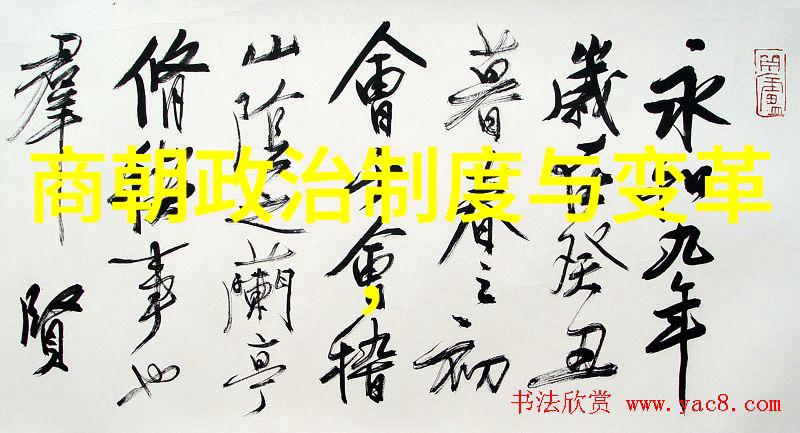 商朝政治制度与变革
,
永和九年
歲在癸丑
暮春之初
會于會稽
山陰之蘭亭
脩禊事也
羣賢
书法欣赏 www.yac8.com